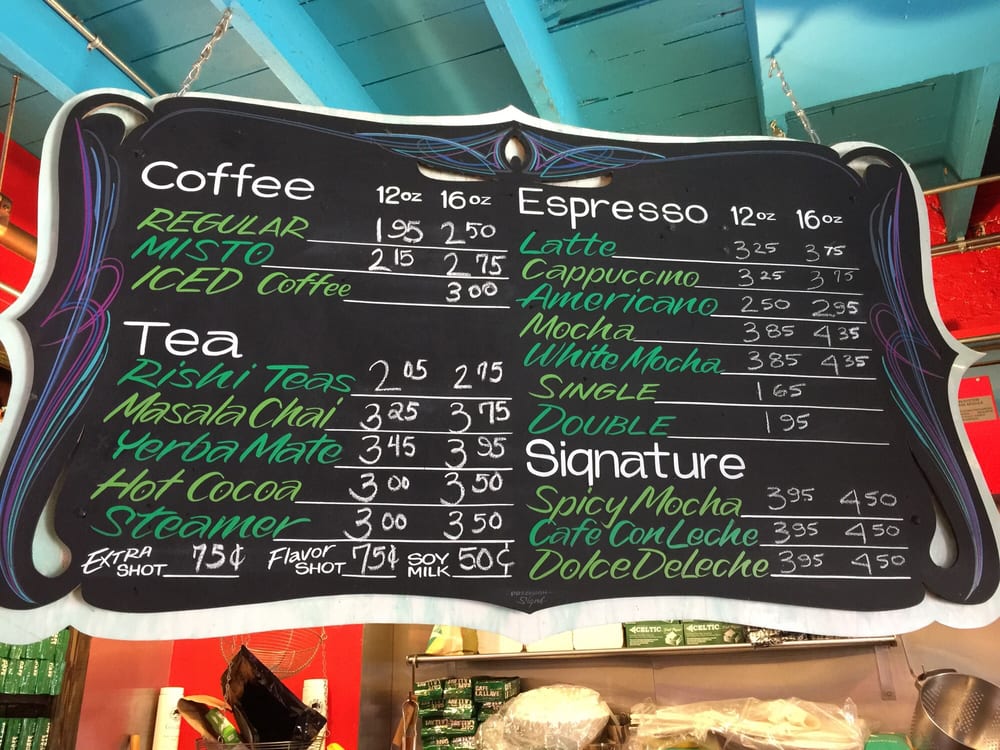 Coffee 12oz 16oz
REGULAR 1 95 2 50
MISTO 2 15 2 75
ICED Coffee 3 00
Tea
Rishi Teas 2 05 2 75
Masala Chai 3 25 3 75
Yerba Mate 3 45 3 95
Hot Cocoa 3 00 3 50
Steamer 3 00 3 50
EXTRA SHOT 75¢ Flavor SHOT 75¢ SOY MILK 50¢
Espresso 12oz 16oz
Latte 3 25 3 75
Cappuccino 3 25 3 75
Americano 2 50 2 95
Mocha 3 85 4 35
White Mocha 3 85 4 35
SINGLE 1 65
DOUBLE 1 95
Signature
Spicy Mocha 3 95 4 50
Cafe Con Leche 3 95 4 50
Dolce De Leche 3 95 4 50
CELTIC CELTIC